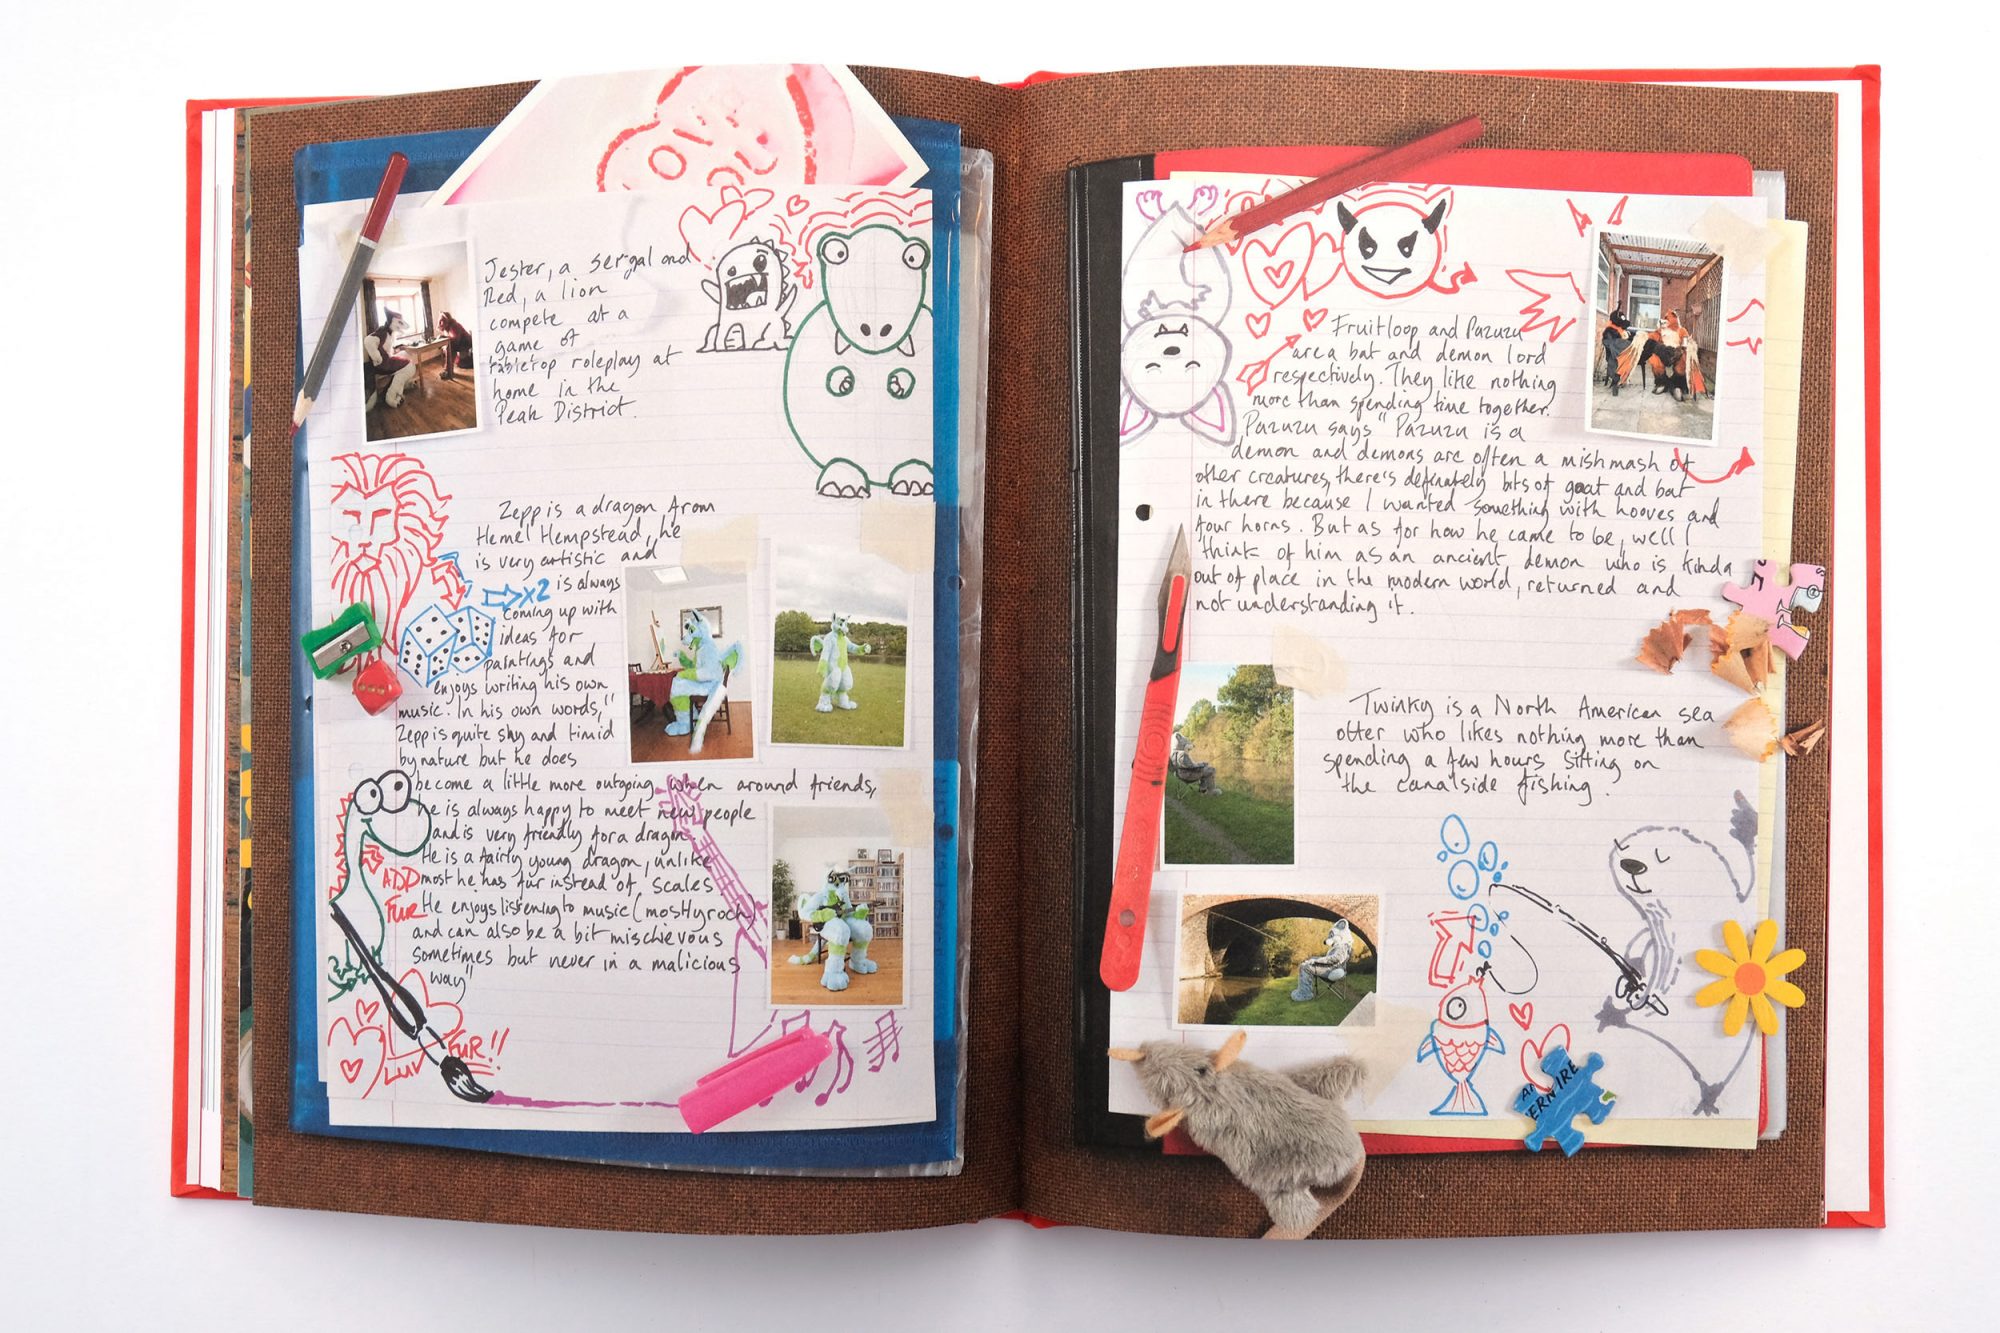 LOVE
YOU
Jester, a sergal and
Red, a lion
compete at a
game of
tabletop roleplay at
home in the
Peak District.
Zepp is a dragon from
Hemel Hempstead, he
is very artistic and
is always
x2
coming up with
ideas for
paintings and
enjoys writing his own
music. In his own words, "
Zepp is quite shy and timid
by nature but he does
become a little more outgoing when around friends,
he is always happy to meet new people
and is very friendly for a dragon.
He is a fairly young dragon, unlike
most he has fur instead of scales
He enjoys listening to music (mostly rock)
and can also be a bit mischievous
sometimes but never in a malicious
way"
ADD
FUR
LUV
FUR!!
Fruitloop and Pazuzu
are a bat and demon lord
respectively. They like nothing
more than spending time together.
Pazuzu says "Pazuzu is a
demon and demons are often a mishmash of
other creatures, there's definately bits of goat and bat
in there because I wanted something with hooves and
four horns. But as for how he came to be, well I
think of him as an ancient demon who is kinda
out of place in the modern world, returned and
not understanding it.
Twinky is a North American sea
otter who likes nothing more than
spending a few hours sitting on
the canalside fishing.
ERNIRE